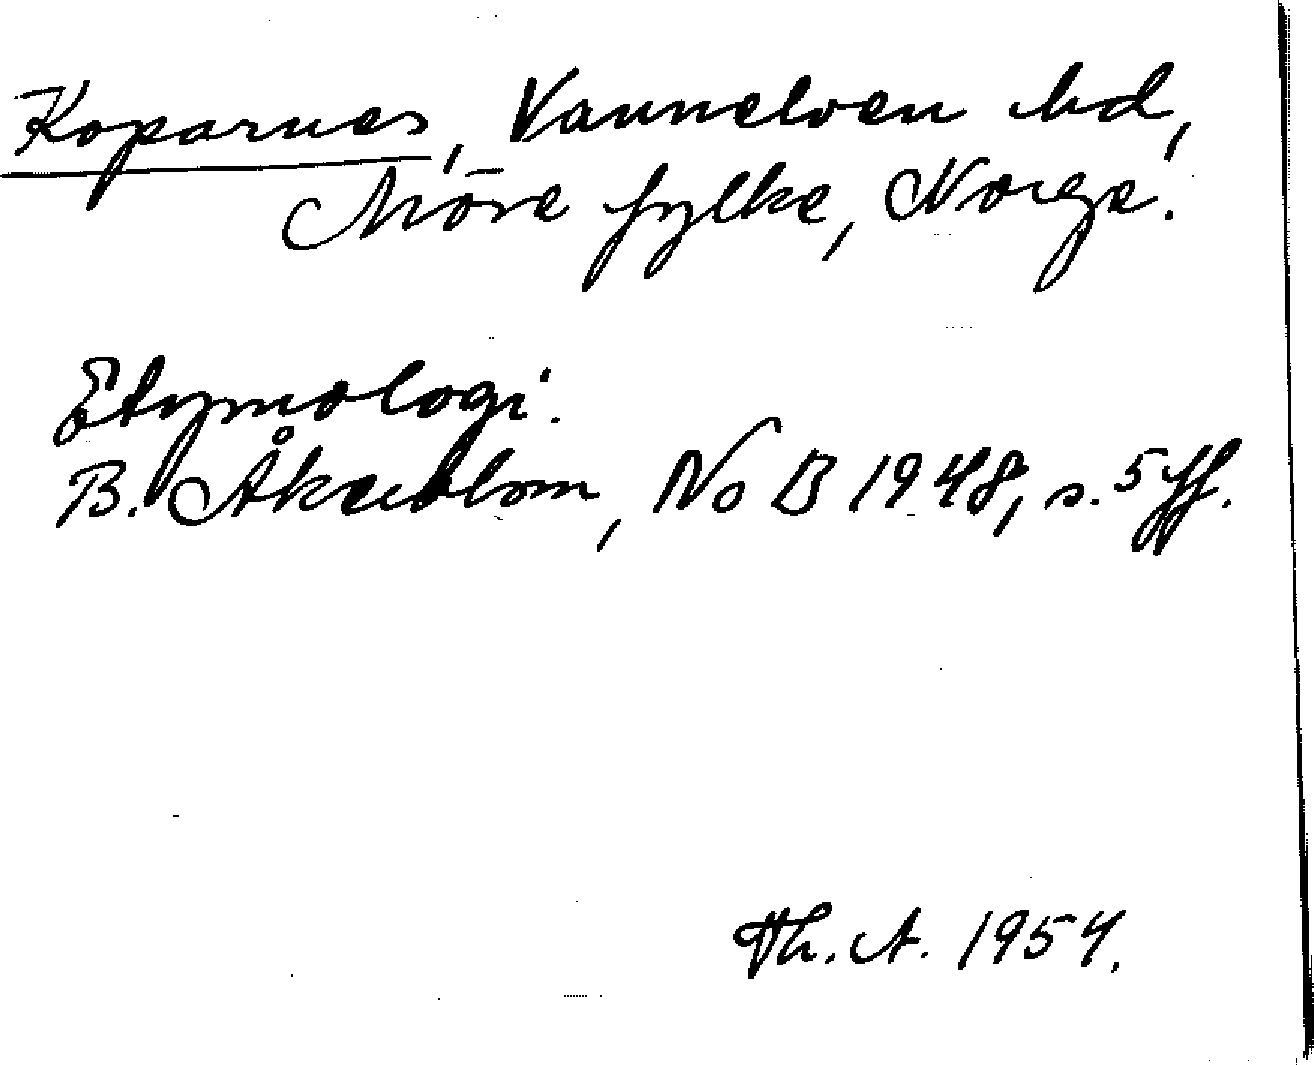 Koparnes, Vannelven hd,
Möre fylke, Norge.
Etymologi.
B. Åkerblom, NoB 1948, s. 5 ff.
Th. A. 1954.